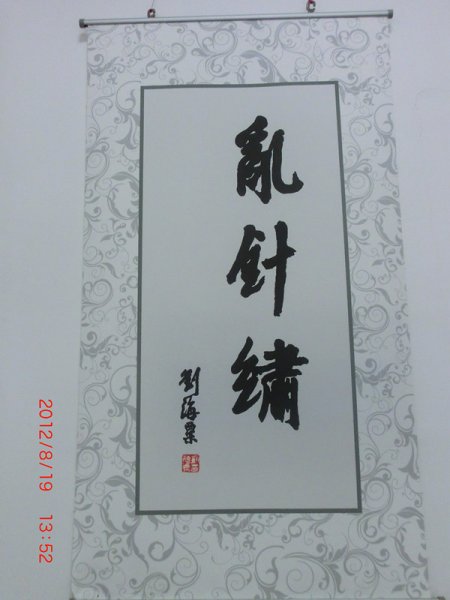 亂針繡
劉海粟
2012/8/19 13:52